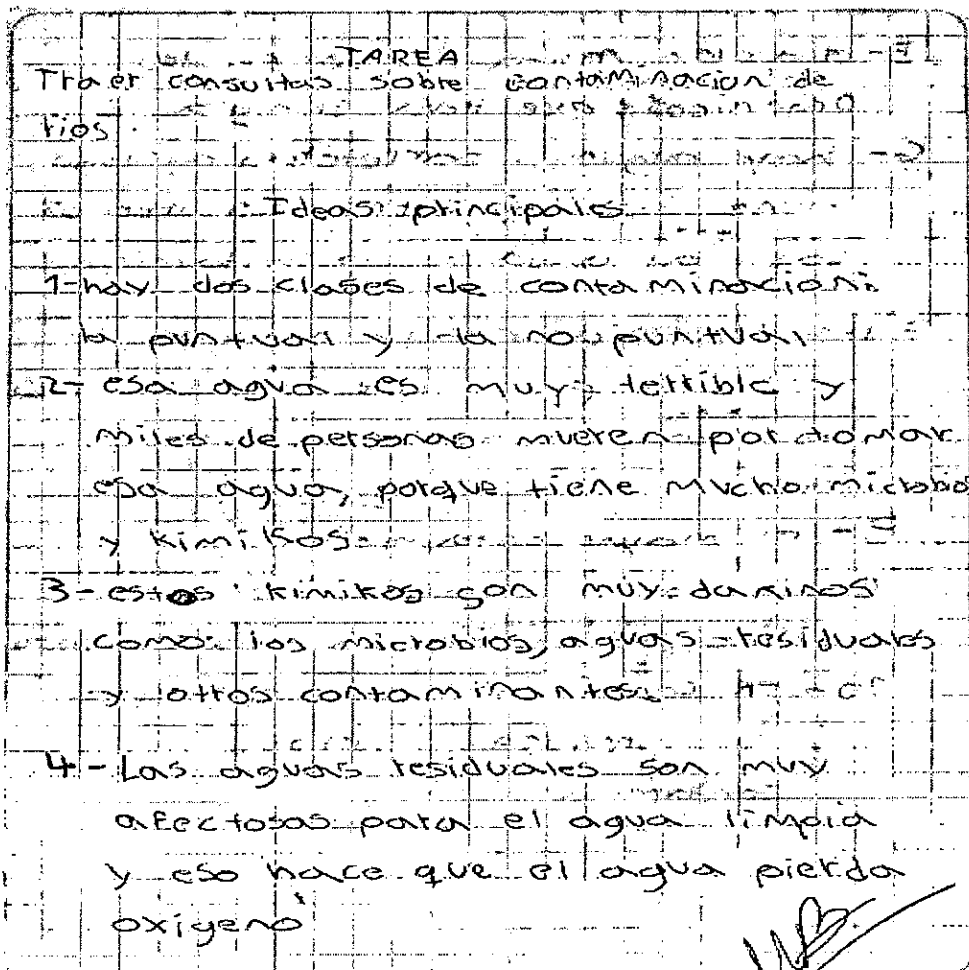 TAREA
Traer consultas sobre contaminacion de
rios.
Ideas principales
1-hay dos clases de contaminacion:
la puntual y la no puntual
2- esa agua es muy terrible y
miles de personas mueren por tomar
esa agua, porque tiene mucho microbio
y kimikos
3- estos kimikos son muy dañinos
como: los microbios, aguas residuales
y otros contaminantes.
4- Las aguas residuales son muy
afectosas para el agua limpia
y eso hace que el agua pierda
oxigeno